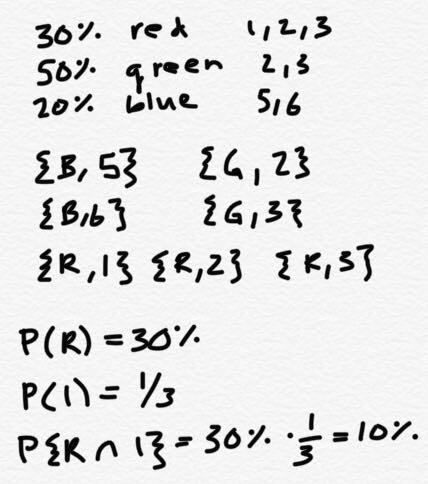 30% red 1,2,3
50% green 2,3
20% blue 5,6
{B,5} {G,2}
{B,6} {G,3}
{R,1} {R,2} {R,3}
P(R) = 30%
P(1) = 1/3
P{R ∩ 1} = 30% · 1/3 = 10%